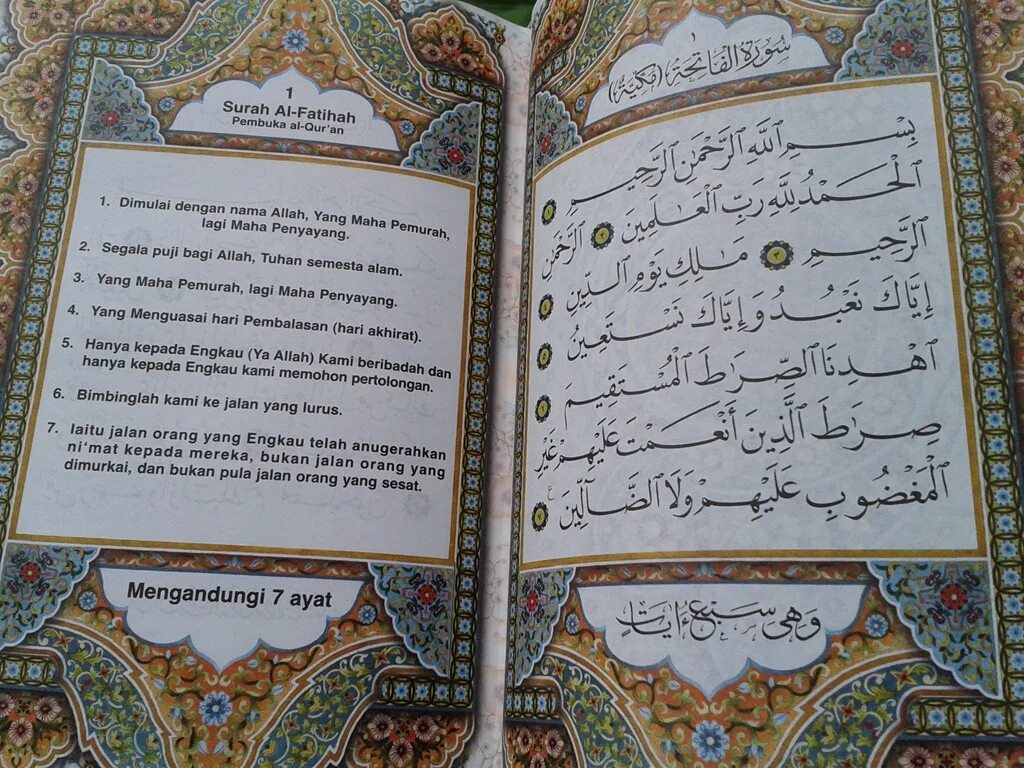 1
Surah Al-Fatihah
Pembuka al-Qur'an
1. Dimulai dengan nama Allah, Yang Maha Pemurah,
lagi Maha Penyayang.
2. Segala puji bagi Allah, Tuhan semesta alam.
3. Yang Maha Pemurah, lagi Maha Penyayang.
4. Yang Menguasai hari Pembalasan (hari akhirat).
5. Hanya kepada Engkau (Ya Allah) Kami beribadah dan
hanya kepada Engkau kami memohon pertolongan.
6. Bimbinglah kami ke jalan yang lurus.
7. Iaitu jalan orang yang Engkau telah anugerahkan
ni'mat kepada mereka, bukan jalan orang yang
dimurkai, dan bukan pula jalan orang yang sesat.
Mengandungi 7 ayat
١
سُورَةُ الْفَاتِحَةِ (مَكِّيَّةٌ)
بِسْمِ ٱللَّهِ ٱلرَّحْمَٰنِ ٱلرَّحِيمِ ١
ٱلْحَمْدُ لِلَّهِ رَبِّ ٱلْعَٰلَمِينَ ٢ ٱلرَّحْمَٰنِ
ٱلرَّحِيمِ ٣ مَٰلِكِ يَوْمِ ٱلدِّينِ ٤
إِيَّاكَ نَعْبُدُ وَإِيَّاكَ نَسْتَعِينُ ٥
ٱهْدِنَا ٱلصِّرَٰطَ ٱلْمُسْتَقِيمَ ٦
صِرَٰطَ ٱلَّذِينَ أَنْعَمْتَ عَلَيْهِمْ غَيْرِ
ٱلْمَغْضُوبِ عَلَيْهِمْ وَلَا ٱلضَّآلِّينَ ٧ ع
وَهِيَ سَبْعُ ءَايَاتٍ